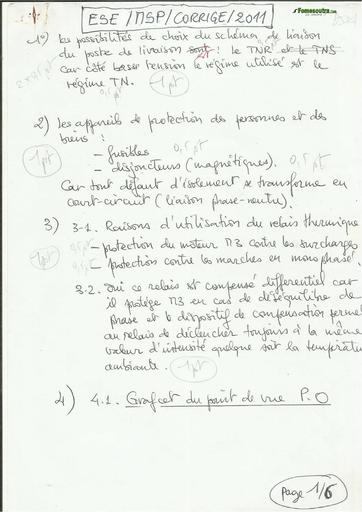 Fomesoutra.com
ESE / MSP / CORRIGE / 2011
1°) Les possibilités de choix du schéma de liaison
du poste de livraison sont : le TNR et le TNS
car côté basse tension le régime utilisé est le
régime TN.
1pt
2) Les appareils de protection des personnes et des
biens :
- fusibles 0,5pt
- disjoncteurs (magnétiques). 0,5pt
1pt
Car tout défaut d'isolement se transforme en
court-circuit (liaison phase-neutre).
3) 3-1. Raisons d'utilisation du relais thermique
- protection du moteur M3 contre les surcharges
- protection contre les marches en monophasé.
1pt
3-2. Oui ce relais est compensé différentiel car
il protège M3 en cas de déséquilibre de
phase et le dispositif de compensation permet
au relais de déclencher toujours à la même
valeur d'intensité quelque soit la température
ambiante. 1pt
4) 4.1. Grafcet du point de vue P.O
page 1/6